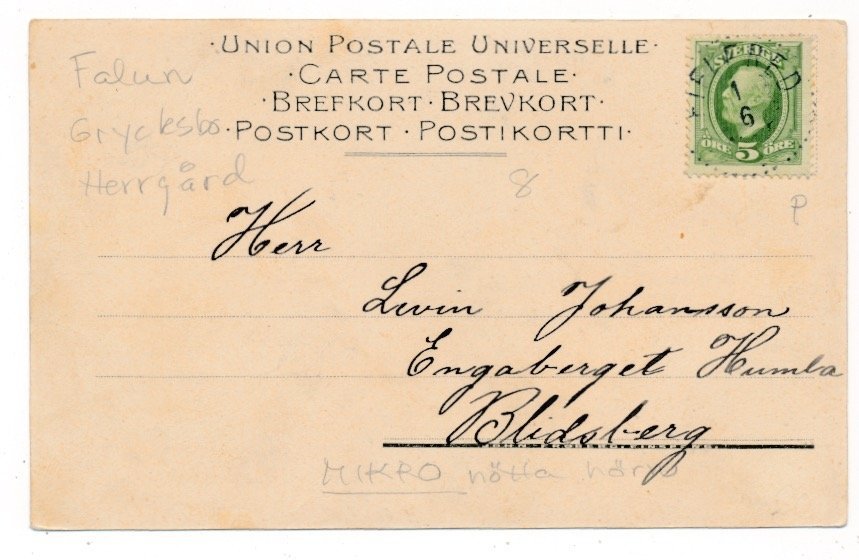 ·UNION POSTALE UNIVERSELLE·
·CARTE POSTALE·
·BREFKORT·BREVKORT·
·POSTKORT·POSTIKORTTI·
Falun
Grycksbo
Herrgård
8
P
SVERIGE
1
6
ÖRE 5 ÖRE
Herr
Livin Johansson
Engaberget Humla
Blidsberg
MIKRO nötta hörn